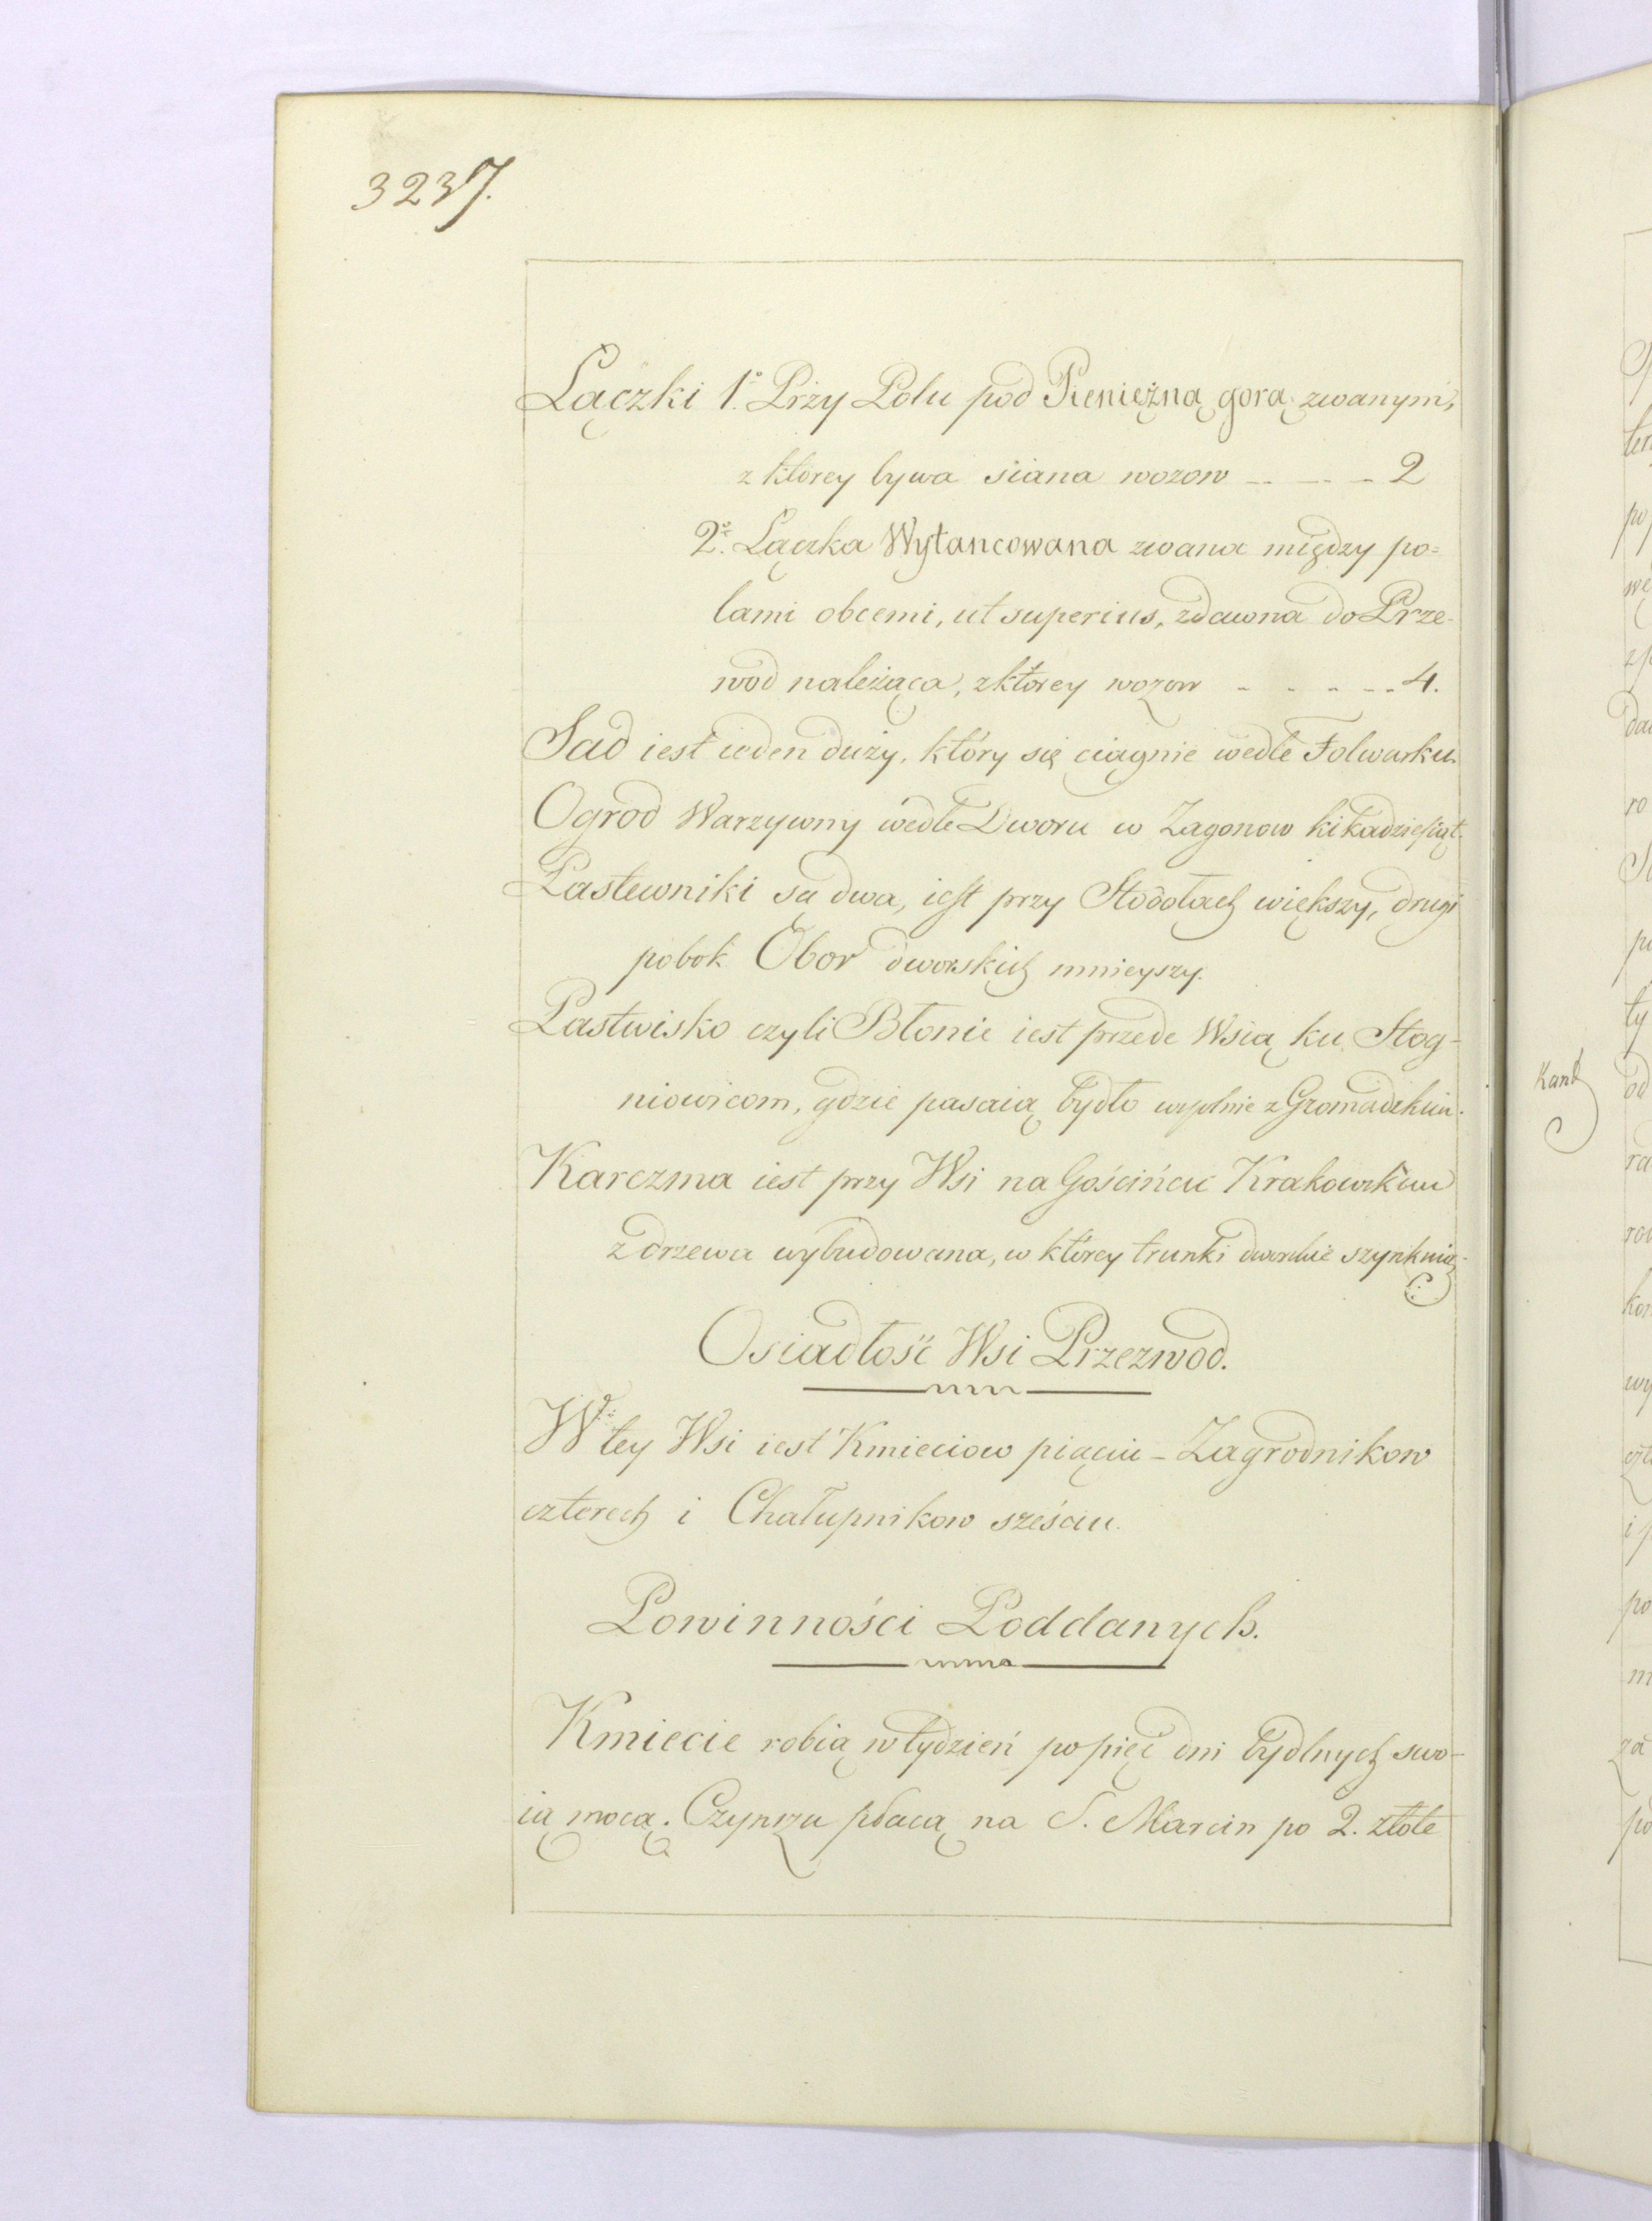 3237.
Lączki 1º. Przy Polu pod Pienięzną gorą zwanym,
z ktorey bywa siana wozow - - - - 2
2º. Lączka Wytancowana zwana między po=
lami obcemi, ut superius, zdawna do Prze-
wod należąca, z ktorey wozow - - - - - 4.
Sad iest ieden duży, który się ciągnie wedle Folwarku.
Ogrod Warzywny wedle Dworu w Zagonow kilkadziesiąt.
Pastewniki są dwa, iest przy Stodołach większy, drugi
pobok Obor dworskich mnieyszy.
Pastwisko czyli Błonie iest przede Wsią ku Stog-
niowicom, gdzie pasaią bydło wspolnie z Gromadzkim.
Karczma iest przy Wsi na Gościńcu Krakowskim
z drzewa wybudowana, w którey trunki dworskie szynkuią.
Osiadłość Wsi Przezwod.
W tey Wsi iest Kmieciow pięciu - Zagrodnikow
czterech i Chałupnikow sześciu.
Powinności Poddanych.
Kmiecie robią w tydzień po pięć dni bydlnych swo-
ią mocą. Czynszu płacą na S. Marcin po 2. złote